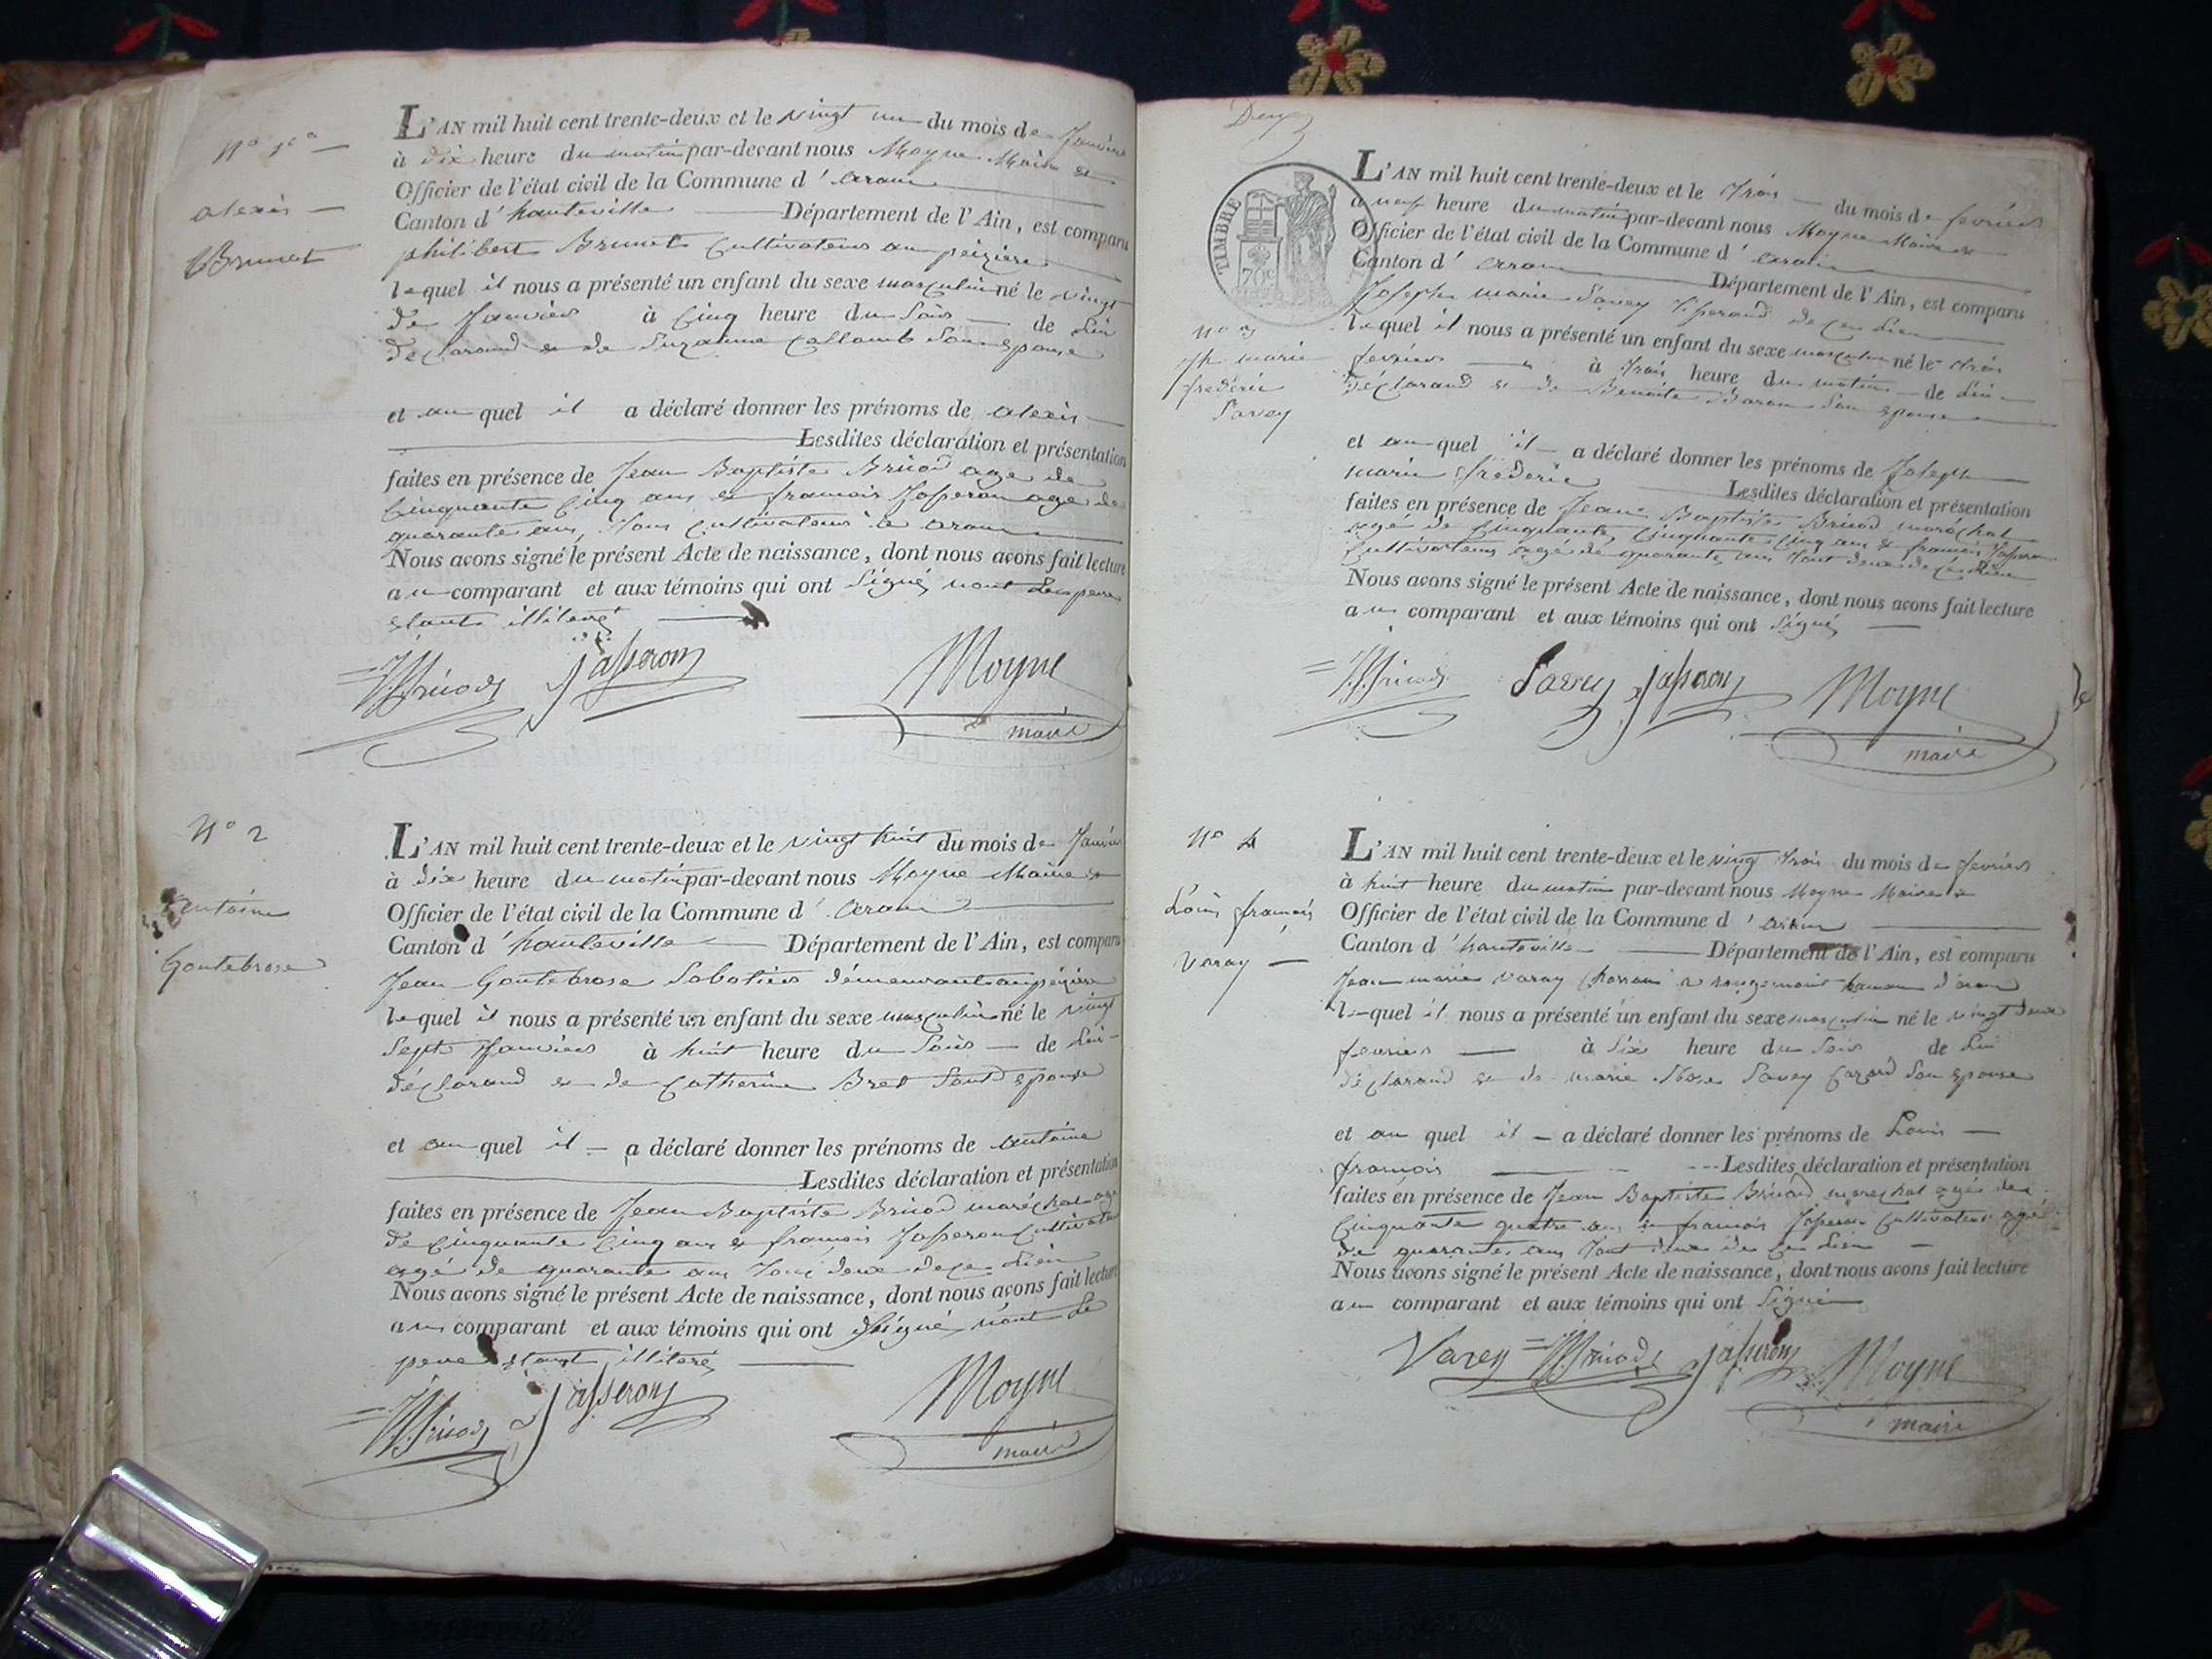 N° 1er
alexis
Brunet
L'AN mil huit cent trente-deux et le vingt un du mois de Janvier
à dix heure du matin par-devant nous Moyne Maire et
Officier de l'état civil de la Commune d'aranc
Canton d'hauteville Département de l'Ain, est comparu
philibert Brunet Cultivateur au
lequel il nous a présenté un enfant du sexe masculin né le vingt
de Janvier à Cinq heure du Soir de Lui
déclarand et de Suzanne Collomb Son epouse
et au quel il a déclaré donner les prénoms de alexis
Lesdites déclaration et présentation
faites en présence de Jean Baptiste Bricod age de
Cinquante Cinq ans et francois Josseron age de
quarante ans, tous Cultivateurs à aranc
Nous avons signé le présent Acte de naissance, dont nous avons fait lecture
au comparant et aux témoins qui ont Signé, nont Le pere
etant illiteré
JBricod Josseron Moyne
maire
N° 2
antoine
Goutebrose
L'AN mil huit cent trente-deux et le vingt huit du mois de Janvier
à dix heure du matin par-devant nous Moyne Maire et
Officier de l'état civil de la Commune d'aranc
Canton d'hauteville Département de l'Ain, est comparu
Jean Goutebrose Sabotier démeurant au
lequel il nous a présenté un enfant du sexe masculin né le vingt
Sept Janvier à huit heure du Soir de Lui
déclarand et de Catherine Bret Sont epouse
et au quel il a déclaré donner les prénoms de antoine
Lesdites déclaration et présentation
faites en présence de Jean Baptiste Bricod maréchal age
de Cinquante Cinq ans et francois Josseron Cultivateur
agé de quarante ans tous deux de ce Lieu
Nous avons signé le présent Acte de naissance, dont nous avons fait lecture
au comparant et aux témoins qui ont Signé, nont Le
pere etant illiteré
JBricod Josseron Moyne
maire
Deux
TIMBRE
70c
N° 3
Jh marie
frederic
Savey
L'AN mil huit cent trente-deux et le trois du mois de fevrier
à neuf heure du matin par-devant nous Moyne Maire et
Officier de l'état civil de la Commune d'aranc
Canton d' aranc Département de l'Ain, est comparu
Joseph marie Savey Tisserand de ce Lieu
lequel il nous a présenté un enfant du sexe masculin né le trois
fevrier à trois heure du matin de Lui
déclarand et de Benoite Baron Son epouse
et au quel il a déclaré donner les prénoms de Joseph
marie frederic Lesdites déclaration et présentation
faites en présence de Jean Baptiste Bricod maréchal
agé de Cinquante, Cinquante Cinq ans et francois Josseron
Cultivateur agé de quarante ans tout deux de ce Lieu
Nous avons signé le présent Acte de naissance, dont nous avons fait lecture
au comparant et aux témoins qui ont Signé
JBricod Savey Josseron Moyne
maire
N° 4
Louis francois
Varay
L'AN mil huit cent trente-deux et le ving trois du mois de fevrier
à huit heure du matin par-devant nous Moyne Maire et
Officier de l'état civil de la Commune d'aranc
Canton d'hauteville Département de l'Ain, est comparu
Jean marie Varay à rougemont hameau d'aranc
lequel il nous a présenté un enfant du sexe masculin né le vingt deux
fevrier à Six heure du Soir de Lui
déclarand et de marie Rose Savey Son epouse
et au quel il a déclaré donner les prénoms de Louis
francois Lesdites déclaration et présentation
faites en présence de Jean Baptiste Bricod marechal agé de
Cinquante quatre ans et francois Josseron Cultivateur agé
de quarante ans tout deux de ce Lieu
Nous avons signé le présent Acte de naissance, dont nous avons fait lecture
au comparant et aux témoins qui ont Signé
Varey JBricod Josseron Moyne
maire